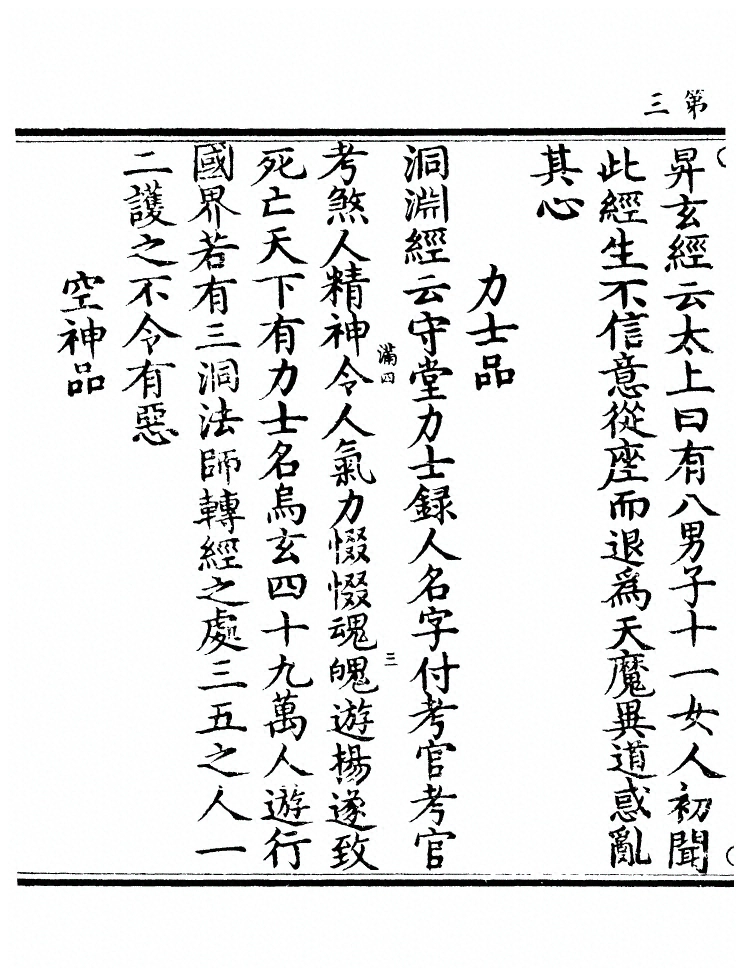 第三
昇玄經云太上曰有八男子十一女人初聞
此經生不信意從座而退爲天魔異道惑亂
其心
力士品
洞淵經云守堂力士録人名字付考官考官
滿四
三
考煞人精神令人氣力惙惙魂魄遊揚遂致
死亡天下有力士名烏玄四十九萬人遊行
國界若有三洞法師轉經之處三五之人一
二護之不令有惡
空神品